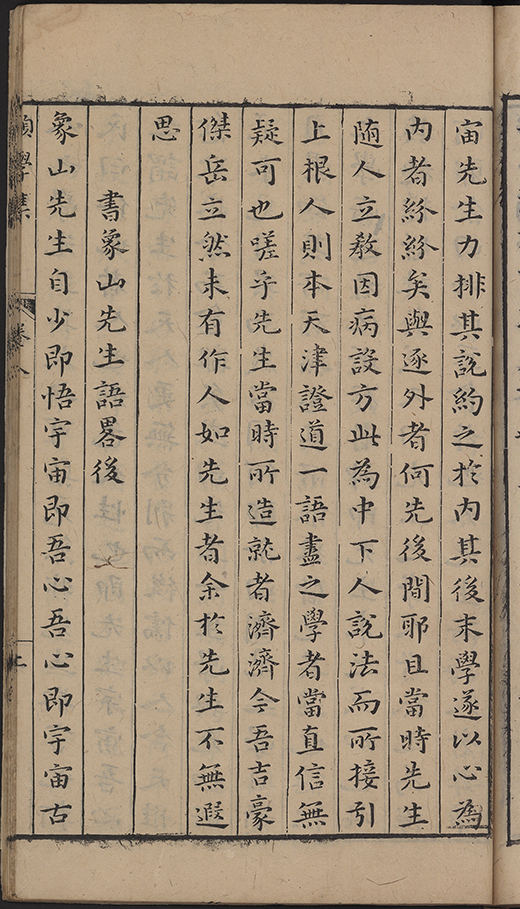 宙先生力排其說約之於内其後末學遂以心為
内者紛紛矣與逐外者何先後間耶且當時先生
随人立教因病設方此為中下人說法而所接引
上根人則本天津證道一語盡之學者當直信無
疑可也嗟乎先生當時所造就者濟濟今吾吉豪
傑岳立然未有作人如先生者余於先生不無遐
思
書象山先生語畧後
象山先生自少即悟宇宙即吾心吾心即宇宙古
願學集
卷八